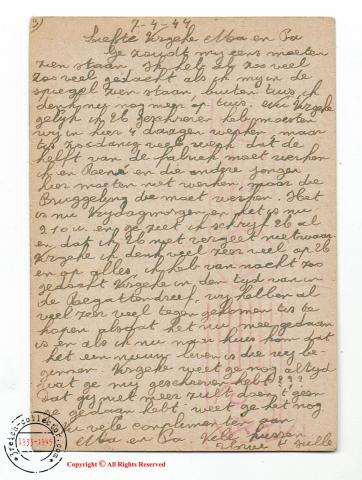 3)
7-4-44
Liefste Vrgehe Ma en Pa
Ge zoudt mij eens moeten
zien staan. Ik heb al zoo veel
zoo veel gedacht als ik mij in de
spiegel zien staan, buiten tuis, ik
denk mij nog meer op tuis.
gelijk ik 26 geschreven heb moesten
wij in hier 4 daagen werken, maar
tis zoodanig veel werk dat de
helft van de fabriek moet werken
ik en René en die andere jongen
hier moeten niet werken, maar die
Bruggeling die moet werken. Het
is nu Vrijdagmorgen en het is nu
2.10 u. en ge ziet ik schrijf 26 al
en dat ik 26 niet vergeet nietwaar.
ik denk veel zeer veel op 26
en op alles, ik heb van nacht zoo
gedacht in den tijd van in
de Regattendreef, wij hebben al
veel zeer veel tegen gekomen tis te
hopen alsdat het nu mee gedaan
is en als ik nu naar huis kom dat
het een nieuw leven is die wij be-
ginnen. weet ge nog altijd
wat ge mij geschreven hebt???
Dat gij niet meer zult doen 't geen
ge gedaan hebt. weet ge het nog
vele complimenten aan
Ma en Pa Vele kussen
Third Reich-collector.com
1933-1945
Copyright © All Rights Reserved